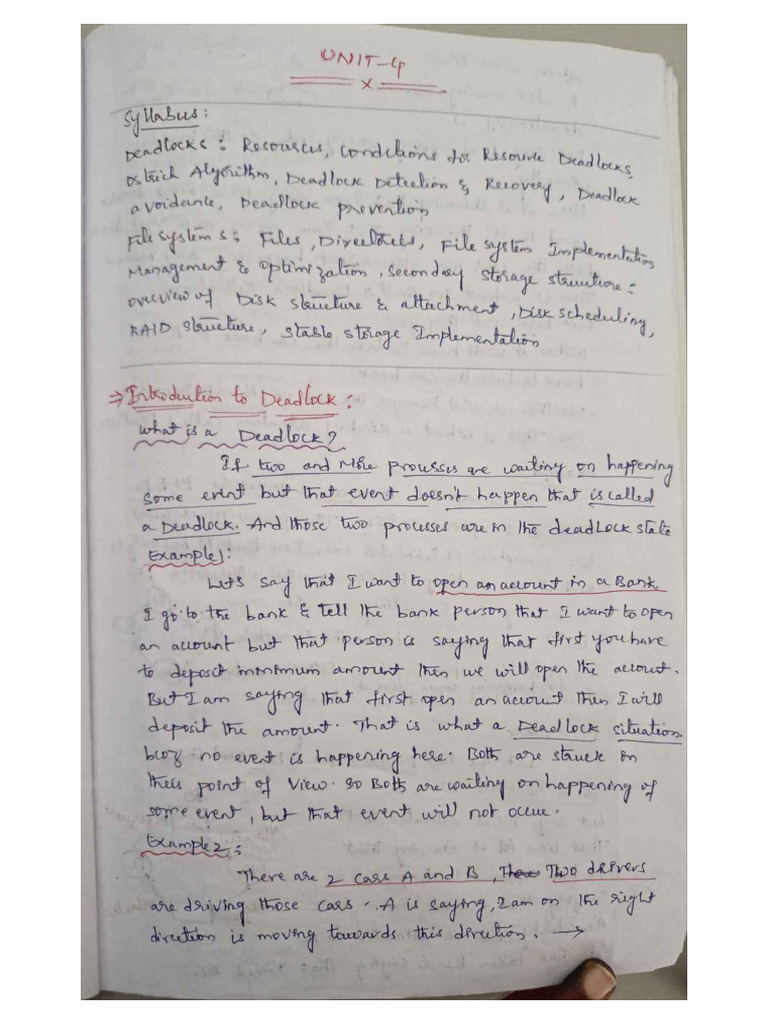 UNIT-4
x
Syllabus:
Deadlocks: Resources, Conditions for Resource Deadlocks,
Ostrich Algorithm, Deadlock Detection & Recovery, Deadlock
avoidance, Deadlock prevention
File systems: Files, Directories, File system Implementation
Management & optimization, secondary storage structure:
overview of Disk structure & attachment, Disk scheduling,
RAID structure, stable storage Implementation
⇒ Introduction to Deadlock:
What is a Deadlock?
If two and More processes are waiting on happening
some event but that event doesn't happen that is called
a Deadlock. And those two processes are in the deadlock state
Example1:
Let's say that I want to open an account in a Bank.
I go to the bank & tell the bank person that I want to open
an account but that person is saying that first you have
to deposit minimum amount then we will open the account.
But I am saying that first open an account then I will
deposit the amount. That is what a Deadlock situation.
bcoz no event is happening here. Both are struck in
their point of view. so Both are waiting on happening of
some event, but that event will not occur.
Example2:
There are 2 cars A and B, Two drivers
are driving those cars. A is saying, I am on the right
direction is moving towards this direction. →